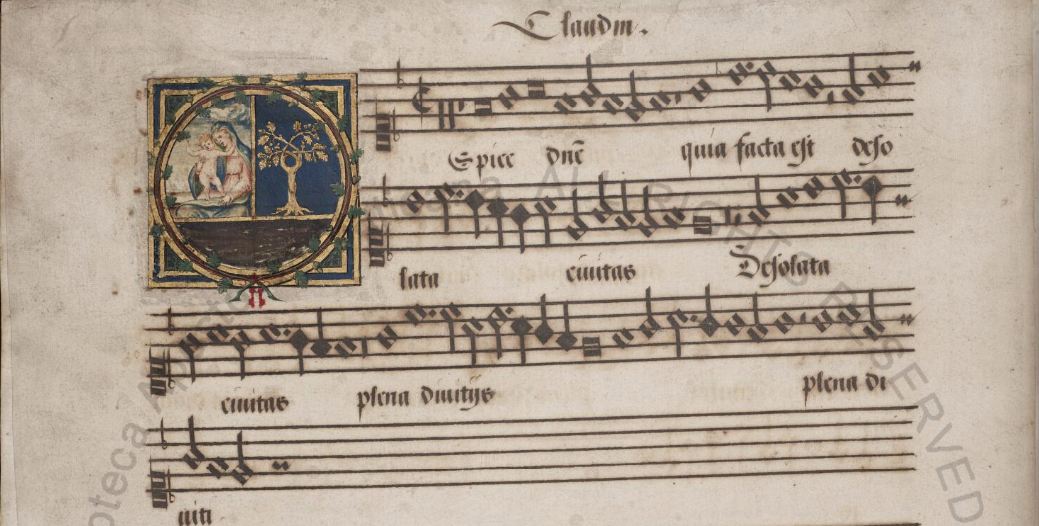 Claudin.
Spice dnē quia facta est deso
lata ciuitas Desolata
ciuitas plena diuitijs plena di
uiti
ALL RIGHTS RESERVED